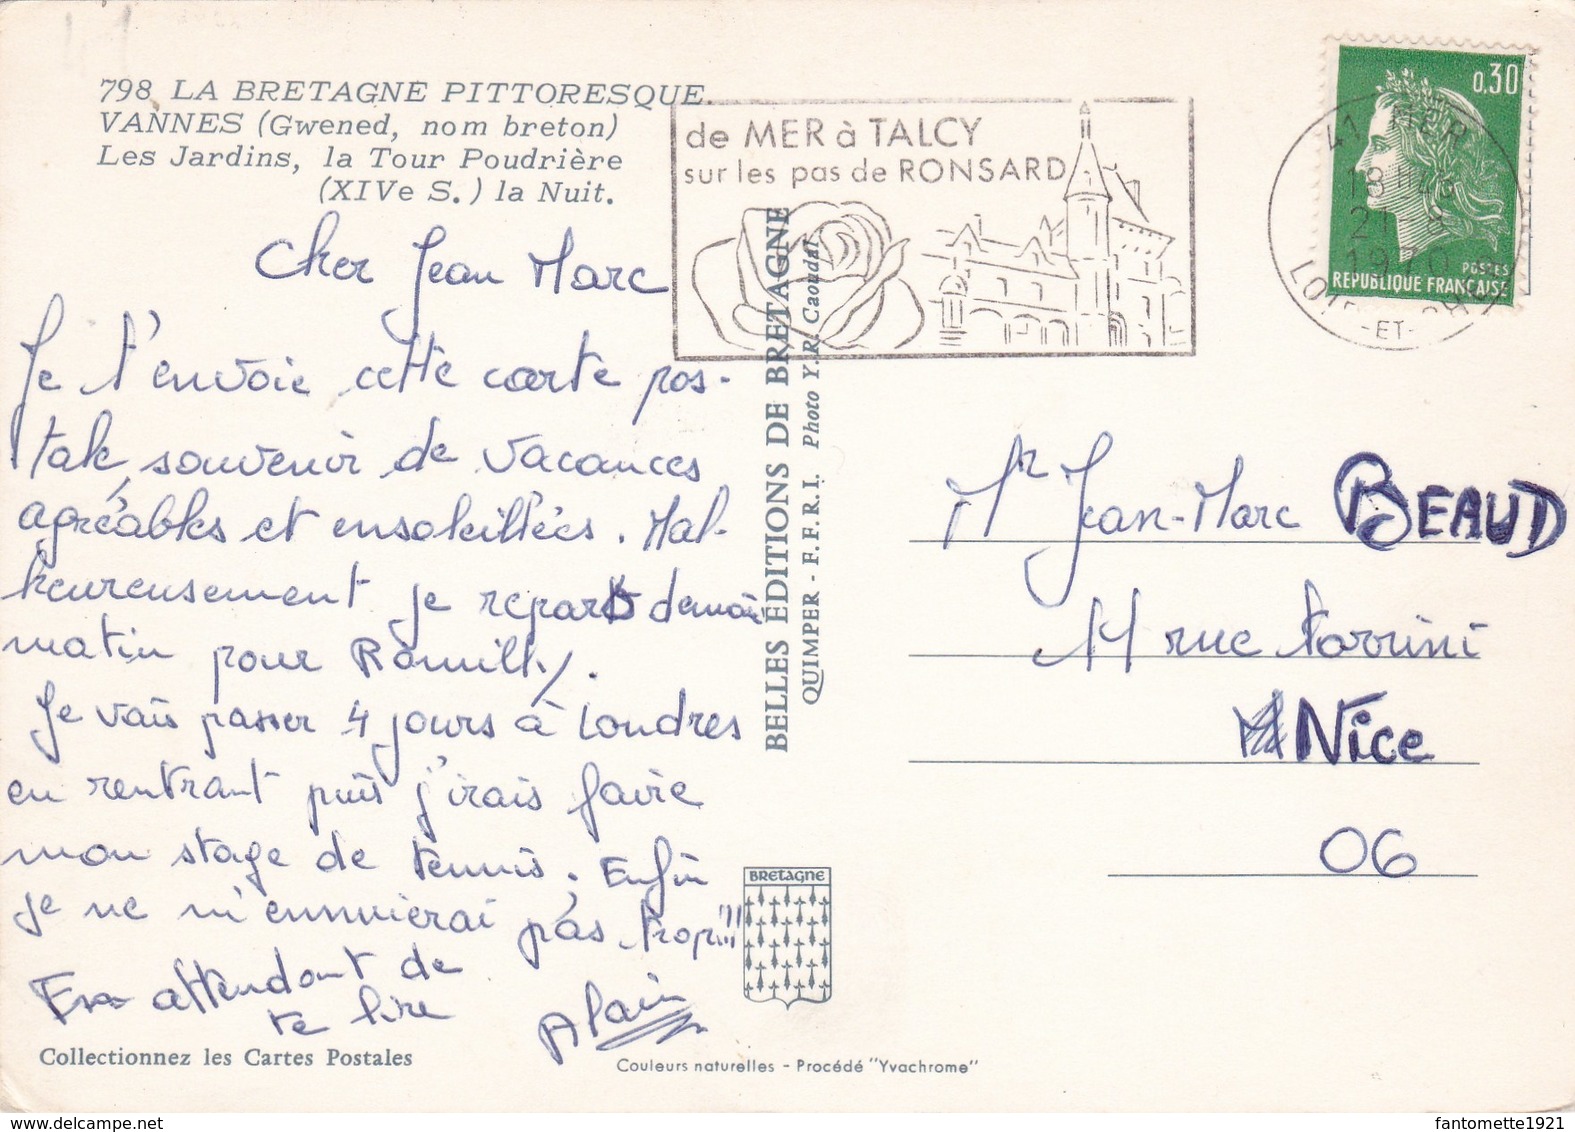 798 LA BRETAGNE PITTORESQUE.
VANNES (Gwened, nom breton)
Les Jardins, la Tour Poudrière
(XIVe S.) la Nuit.
de MER à TALCY
sur les pas de RONSARD
0,30
POSTES
REPUBLIQUE FRANÇAISE
41 MER
18H
21-8
1970
LOIR-ET-CHER
Cher Jean Marc
Je t'envoie cette carte pos-
tale, souvenir de vacances
agréables et ensoleillées. Mal-
heureusement je repars demain
matin pour Romilly.
Je vais passer 4 jours à Londres
en rentrant puis j'irais faire
mon stage de tennis. Enfin
je ne m'ennuierai pas trop!!!
En attendant de
te lire
Alain
BELLES ÉDITIONS DE BRETAGNE
QUIMPER - F.F.R.I. Photo Y.R. Caoudal
Mr Jean-Marc BEAUD
11 rue Torrini
Nice
06
BRETAGNE
Collectionnez les Cartes Postales
Couleurs naturelles - Procédé "Yvachrome"
fantomette1921